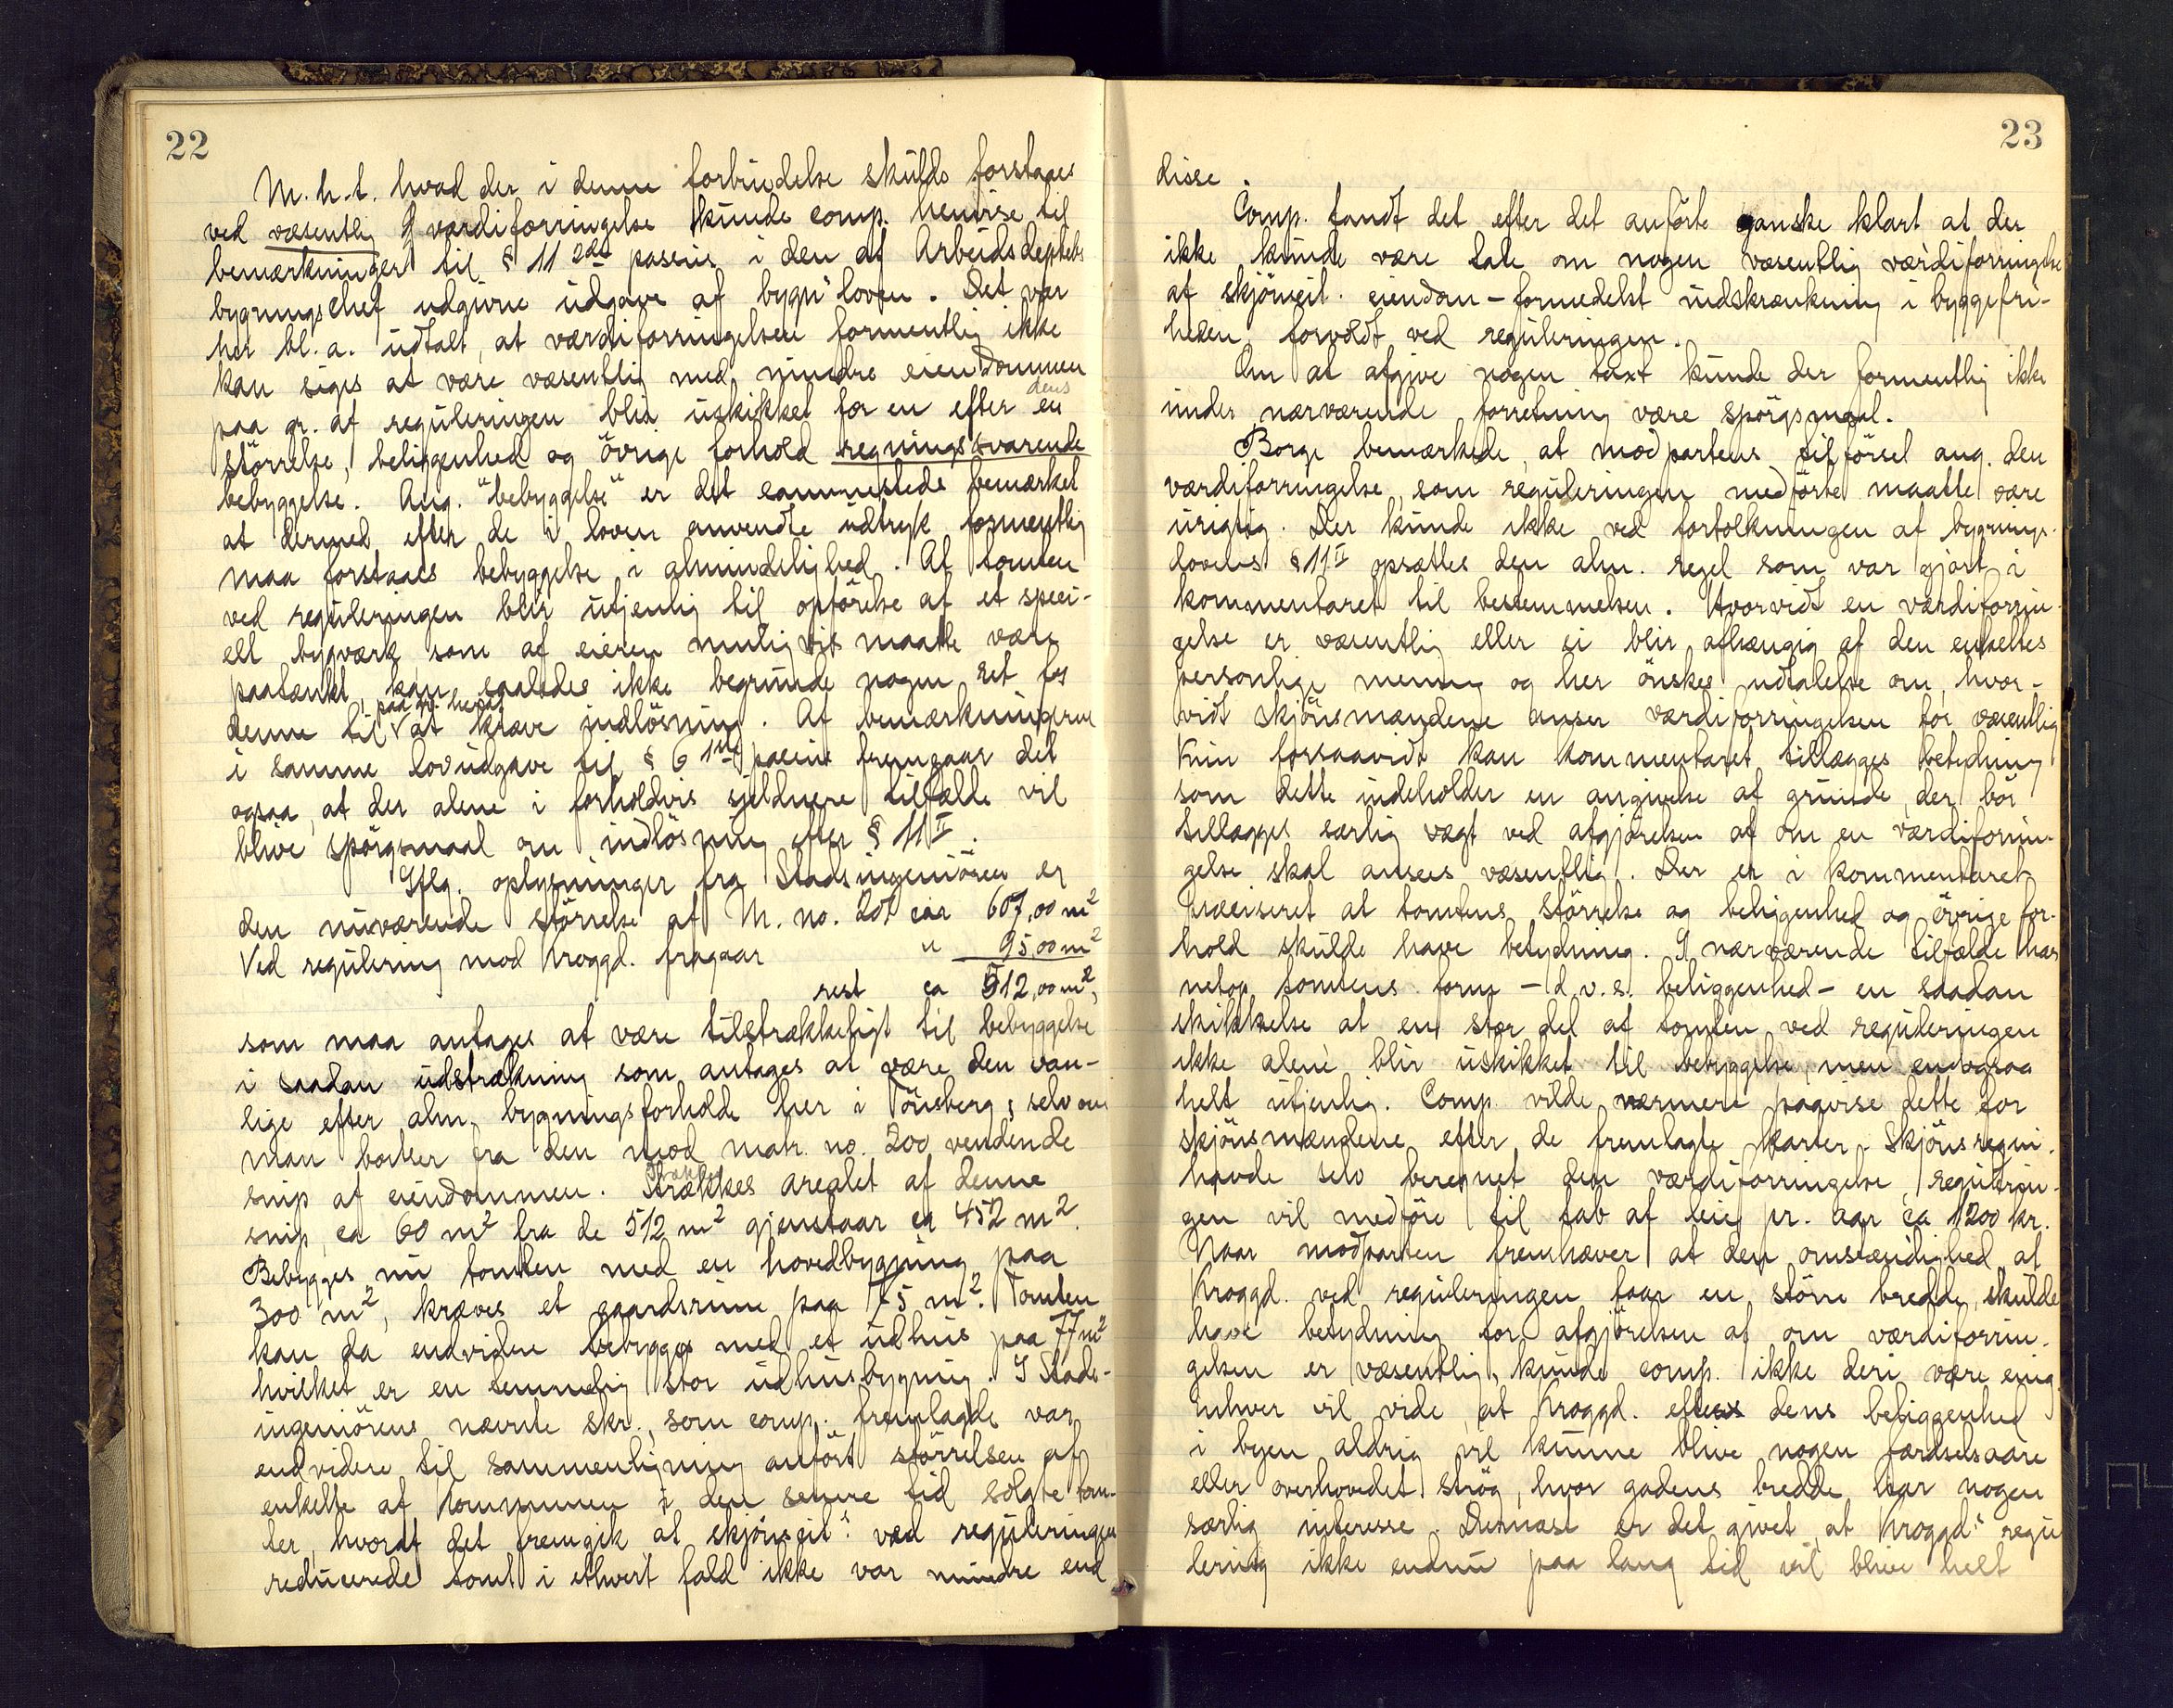 22
M.h.t. hvad der i denne forbindelse skulde forstaaes
ved væsentlig værdiforringelse kunde comp. henvise til
bemærkninger til § 11 2det passus i den af Arbeidsdeptets
bygningschef udgivne udgave af bygn.loven. Det var
her bl.a. udtalt, at værdiforringelsen formentlig ikke
kan siges at være væsentlig med mindre eiendommen
paa gr. af reguleringen blir uskikket for en efter dens
størrelse, beliggenhed og övrige forhold regningssvarende
bebyggelse. Ang. "bebyggelse" er det sammesteds bemærket
at dermed efter de i loven anvendte udtryk formentlig
maa forstaaes bebyggelse i almindelighed. At tomten
ved reguleringen blir utjenlig til opförelse af et speci-
elt bygværk, som af eieren muligvis maatte være
paatænkt, kan saaledes ikke begrunde nogen ret for
denne til paa gr. heraf at kræve indlösning. Af bemærkningerne
i samme lovudgave til § 6 1ste passus fremgaar det
ogsaa, at der alene i forholdsvis sjeldnere tilfælde vil
blive spörgsmaal om indlösning efter § 11 II.
Iflg. oplysninger fra Stadsingeniören er
den nuværende störrelse af M. no. 201 ca 607,00 m2
Ved regulering mod Kroggd. fragaar " 95,00 m2
rest ca 512,00 m2,
som maa antages at være tilstrækkeligt til bebyggelse
i saadan udstrækning som antages at være den van-
lige efter alm. bygningsforholde her i Tönsberg, selv om
man bortser fra den mod matr. no. 200 vendende
snip af eiendommen. Trækkes arealet af denne
snip, ca 60 m2 fra de 512 m2 gjenstaar ca 452 m2.
Bebygges nu tomten med en hovedbygning paa
300 m2, kræves et gaardsrum paa 75 m2. Tomten
kan da endvidere bebygges med et udhus paa 77 m2
hvilket er en temmelig stor udhusbygning. I Stads-
ingeniörens nævnte skr., som comp. fremlagde var
endvidere til sammenligning anfört störrelsen af
enkelte af kommunen i den senere tid solgte tom-
ter, hvoraf det fremgik at skjönseit's ved reguleringen
reducerede tomt i ethvert fald ikke var mindre end
23
disse.
Comp. fandt det efter det anförte ganske klart at der
ikke kunde være tale om nogen væsentlig værdiforringelse
af skjönseit. eiendom - formedelst indskrænkning i byggefri-
heden forvoldt ved reguleringen.
Om at afgive nogen taxt kunde der formentlig ikke
under nærværende forretning være spörgsmaal.
Borge bemærkede, at modpartens tilförsel ang. den
værdiforringelse, som reguleringen medförte maatte være
urigtig. Der kunde ikke ved fortolkningen af bygnings-
lovens § 11 II opsættes den alm. regel som var gjort i
kommentaret til bestemmelsen. Hvorvidt en værdiforrin-
gelse er væsentlig eller ei blir afhængig af den enkeltes
personlige mening og her önskes udtalelse om, hvor-
vidt skjönsmændene anser værdiforringelsen for væsentlig
Kun forsaavidt kan kommentaret tillægges betydning
som dette indeholder en angivelse af grunde, der bör
tillægges særlig vægt ved afgjörelsen af om en værdiforrin-
gelse skal ansees væsentlig. Der er i kommentaret
præciseret at tomtens störrelse og beliggenhed og övrige for-
hold skulde have betydning. I nærværende tilfælde har
netop tomtens form - d.v.s. beliggenhed - en saadan
skikkelse at en stor del af tomten ved reguleringen
ikke alene blir uskikket til bebyggelse, men endogsaa
helt utjenlig. Comp. vilde nærmere paavise dette for
skjönsmændene efter de fremlagte karter. Skjönsreqvi.
havde selv beregnet den værdiforringelse, regulerin-
gen vil medföre til tab af leie pr. aar ca 1200 kr.
Naar modparten fremhæver at den omstændighed, at
Kroggd. ved reguleringen faar en större bredde, skulde
have betydning for afgjörelsen af om værdiforrin-
gelsen er væsentlig, kunde comp. ikke deri være enig.
Enhver vil vide, at Kroggd. efter dens beliggenhed
i byen aldrig vil kunne blive nogen færdselsaare
eller overhovedet strög, hvor gadens bredde har nogen
særlig interesse. Dernæst er det givet, at Kroggd's regu
lering ikke endnu paa lang tid vil blive helt